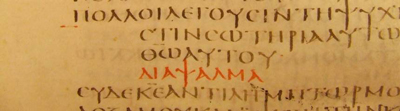 ΠΟΛΛΟΙΛΕΓΟΥϹΙΝΤΗΨΥΧΗ
ϹΤΙΝϹΩΤΗΡΙΑΑΥΤΩ
ΘΩΑΥΤΟΥ
ΔΙΑΨΑΛΜΑ
ϹΥΔΕΚΕΑΝΤΙΛΗΜΠΤΩΡΜΟ